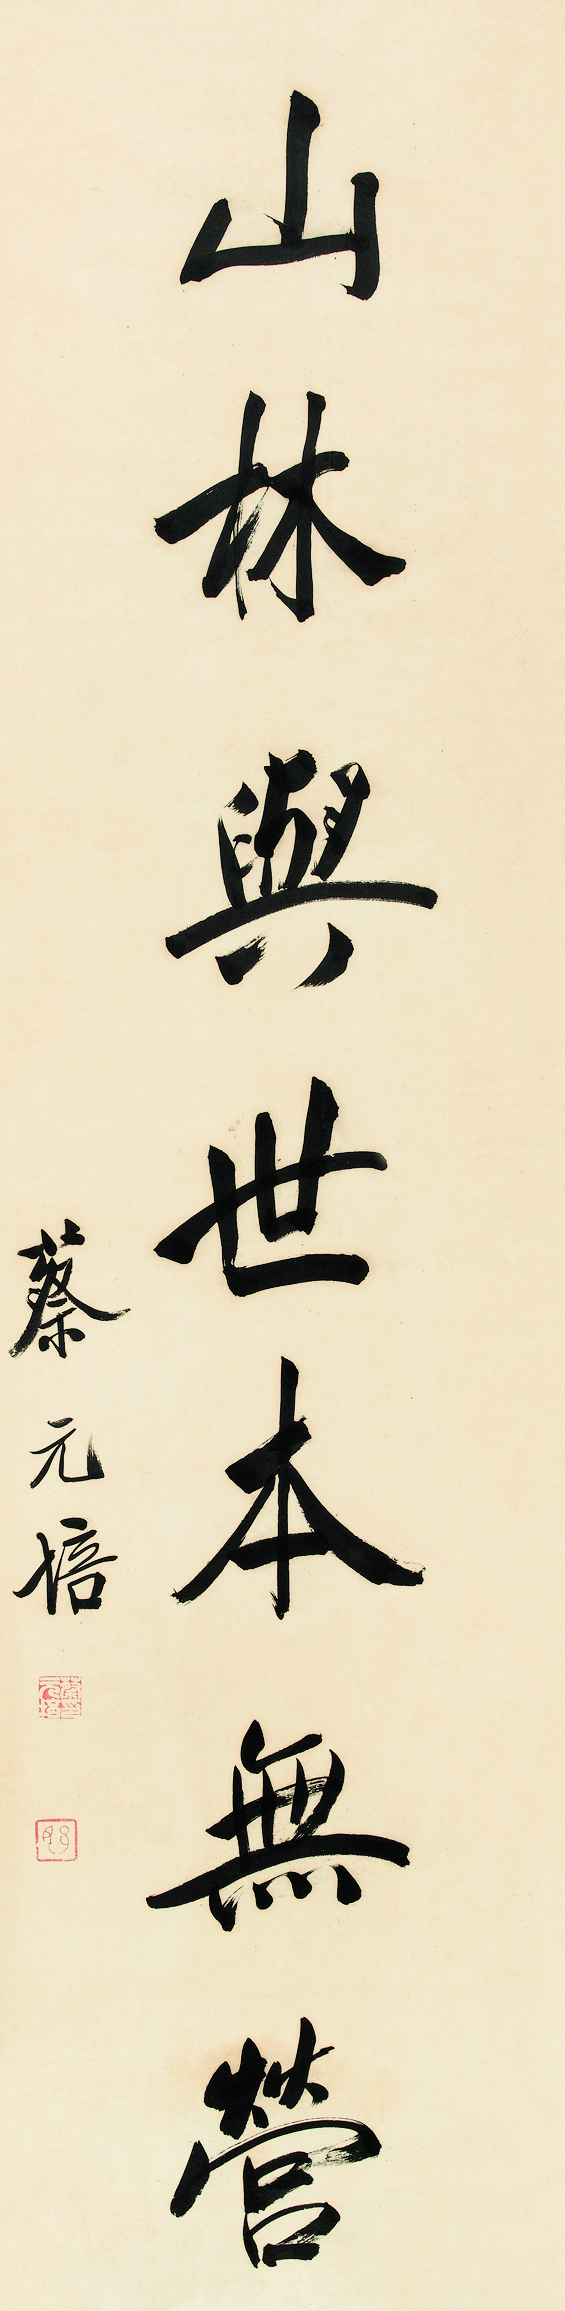 山林與世本無營
蔡元培